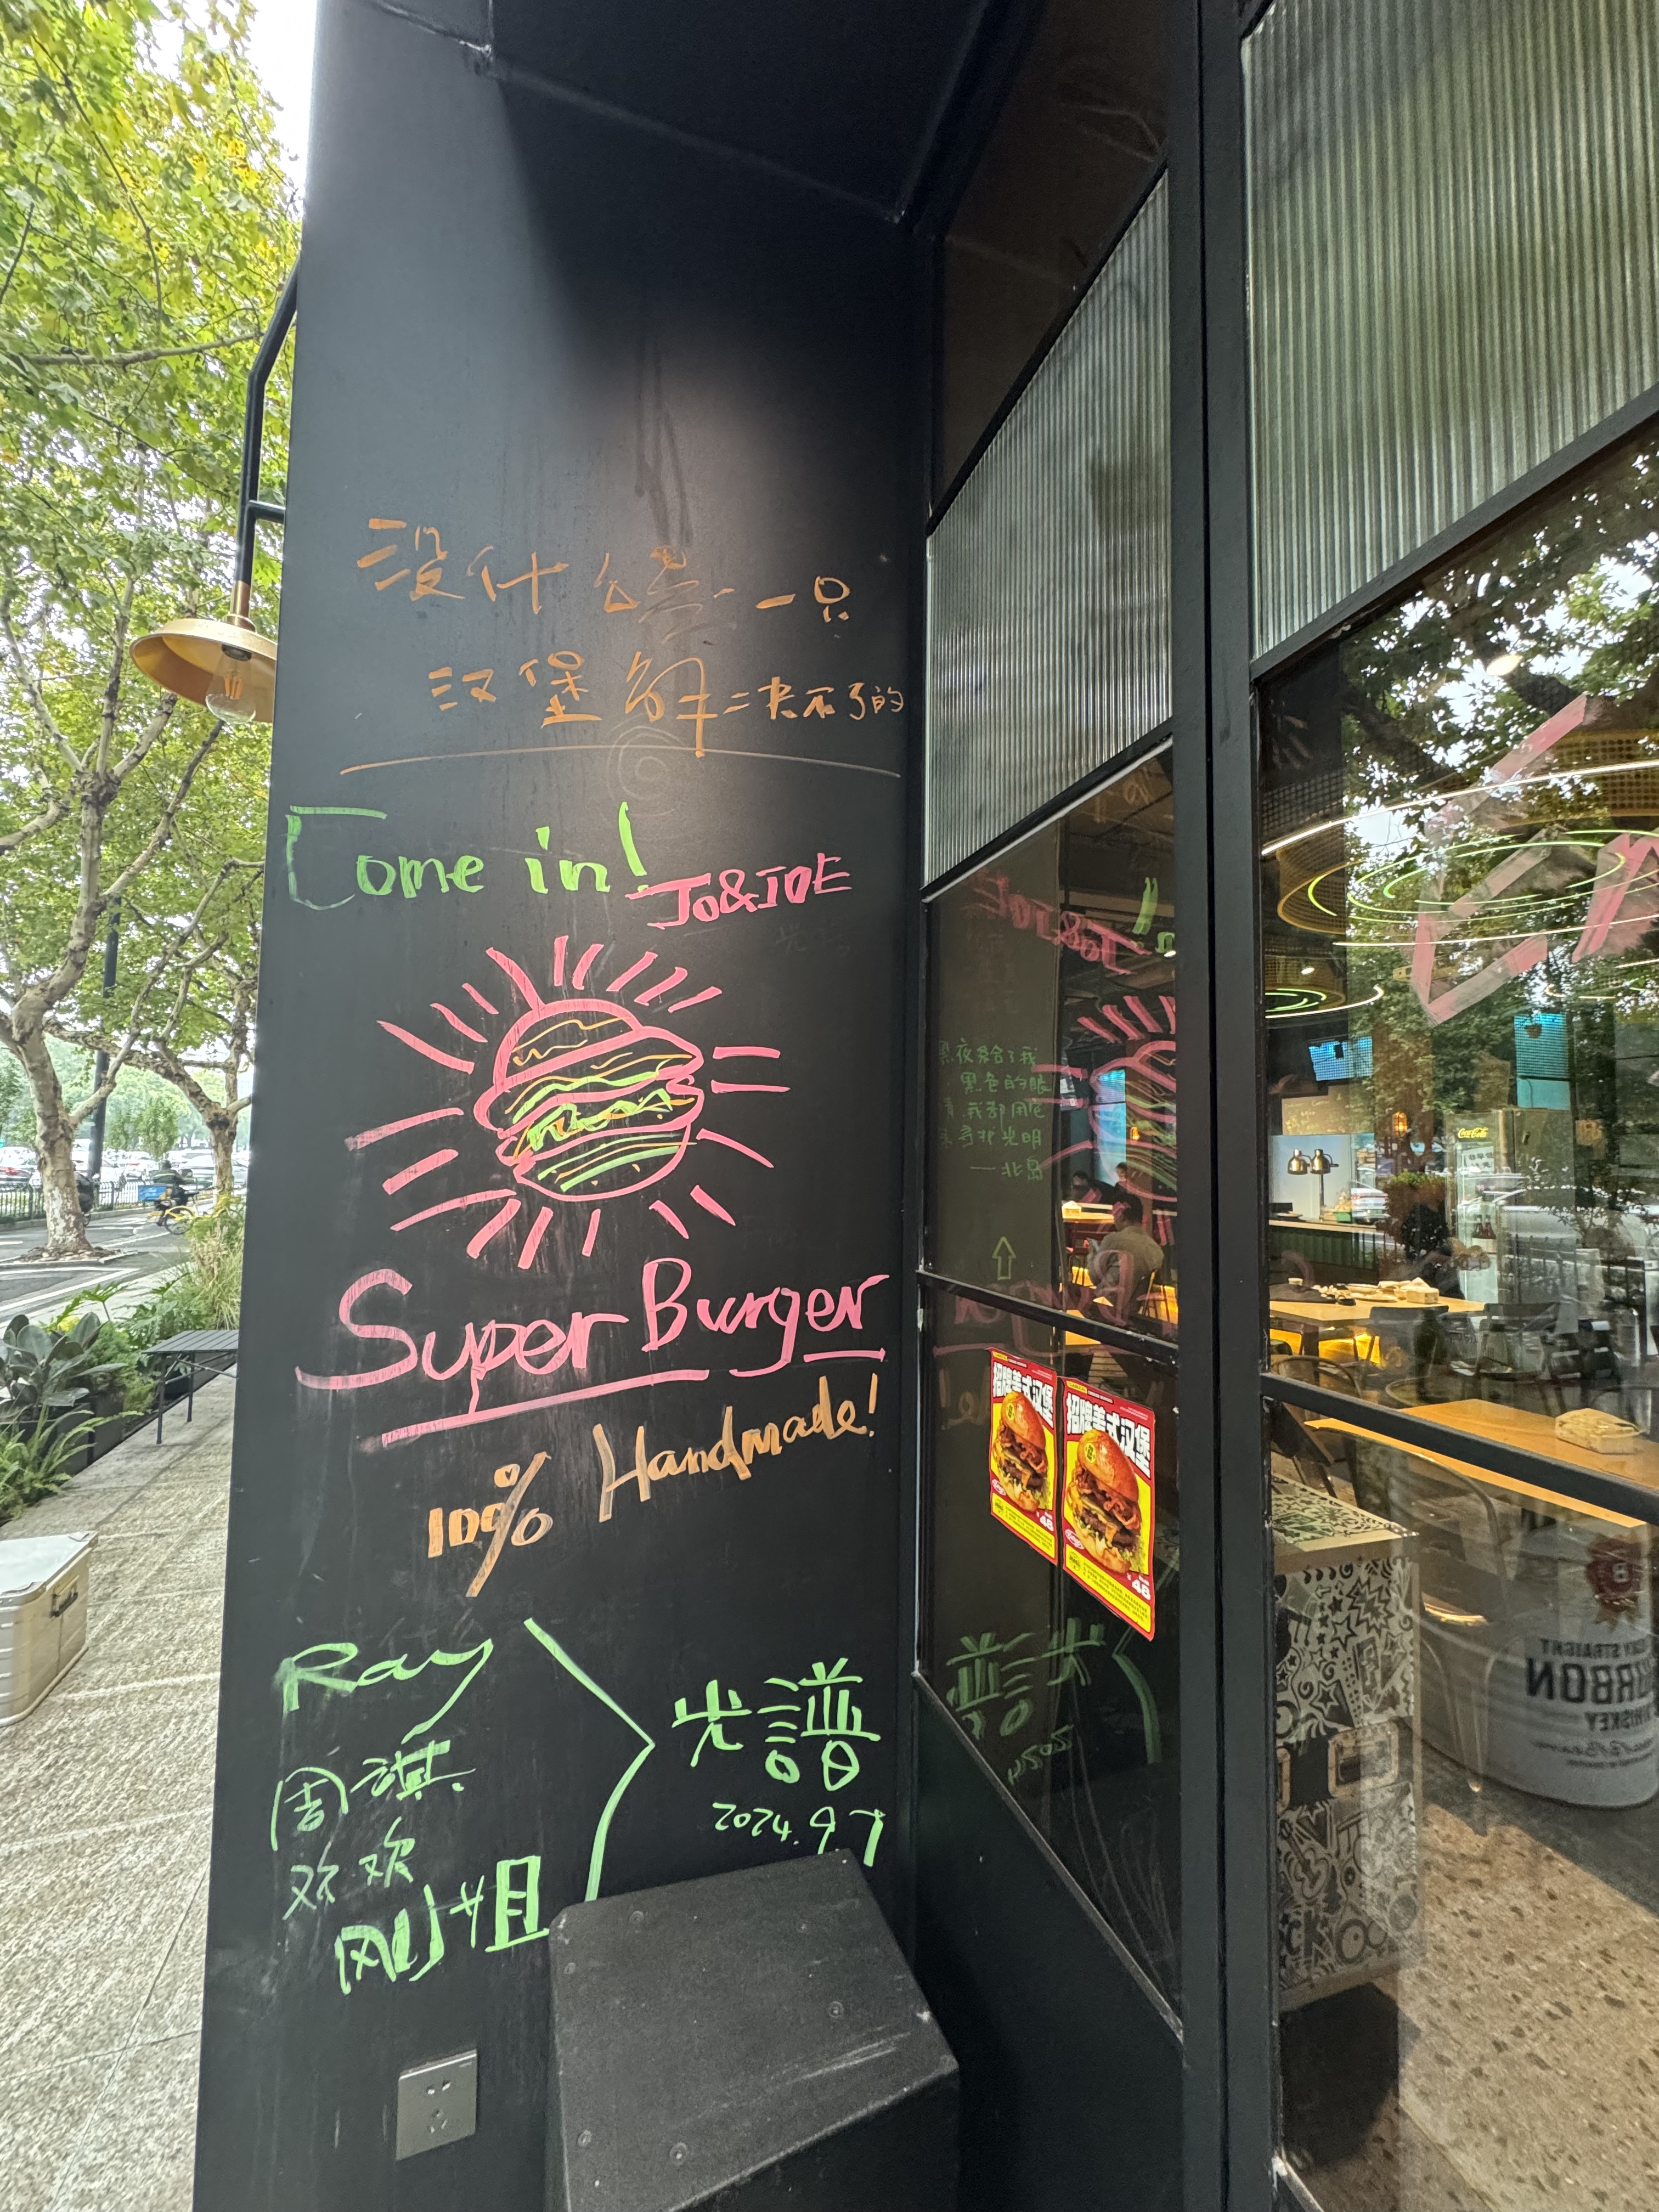 没什么是一只
汉堡解决不了的
Come in!
Jo&JOE
Super Burger
100% Handmade!
Ray
周旗
欢欢
刚姐
光譜
2024.9 7
黑夜给了我
黑色的眼
我却用它
寻找光明
——北岛
招牌美式汉堡
48
招牌美式汉堡
48
Coca-Cola
STRAIGHT
BOURBON
WHISKEY